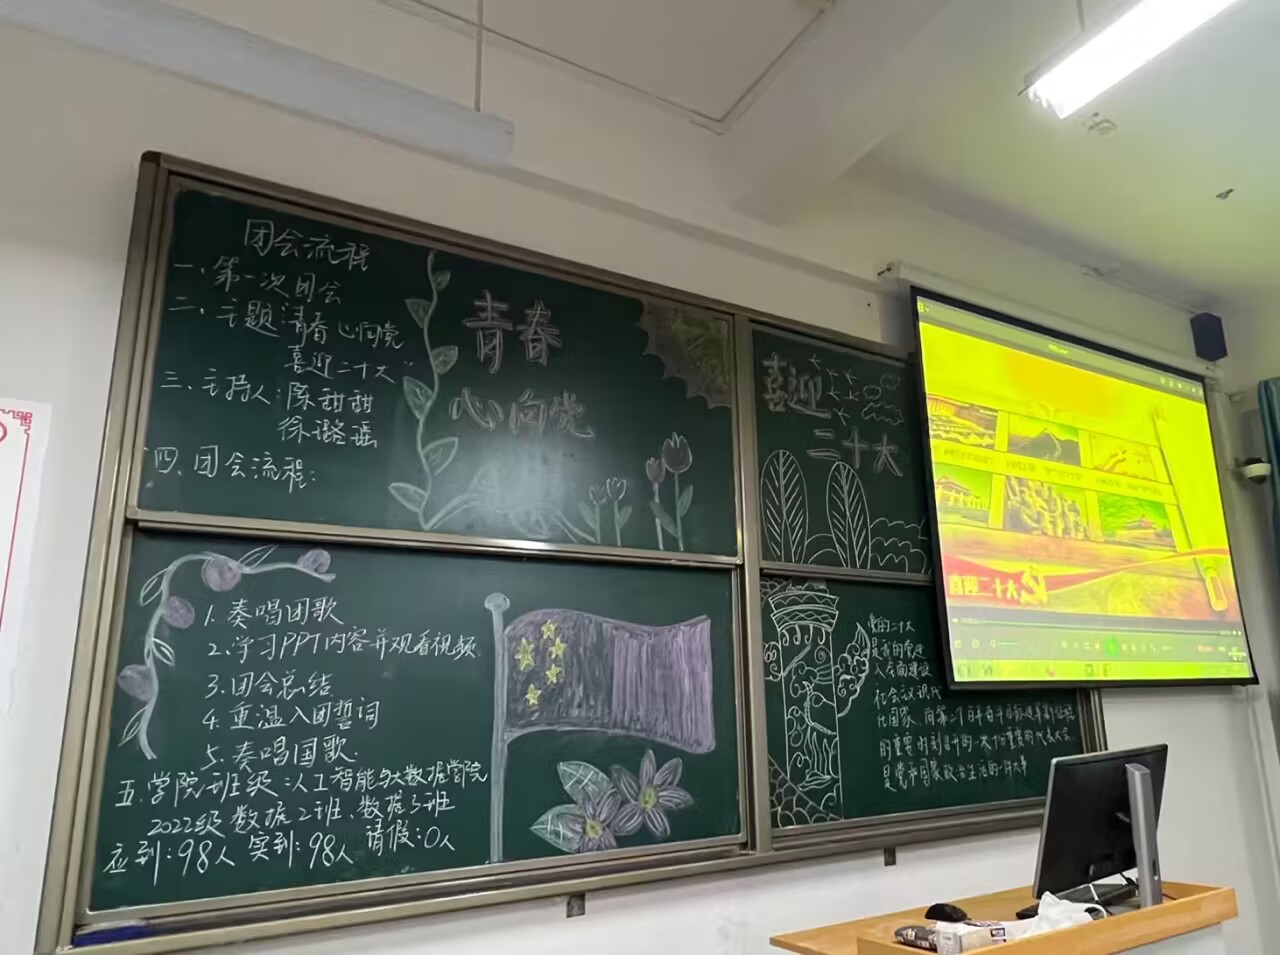 团会流程
一、第一次团会
二、主题:"青春心向党
喜迎二十大"
三、主持人:陈甜甜
徐璐谣
四、团会流程:
青春
心向党
喜迎
二十大
1.奏唱团歌
2.学习PPT内容并观看视频
3.团会总结
4.重温入团誓词
5.奏唱国歌.
五.学院班级:人工智能与大数据学院
2022级数据2班、数据3班
应到:98人 实到:98人 请假:0人
党的二十大
是我的党进
入全面建设
社会主义现代
化国家、向第二个百年奋斗目标进军新征程
的重要时刻召开的一次十分重要的代表大会.
是党和国家政治生活的一件大事
喜迎二十大